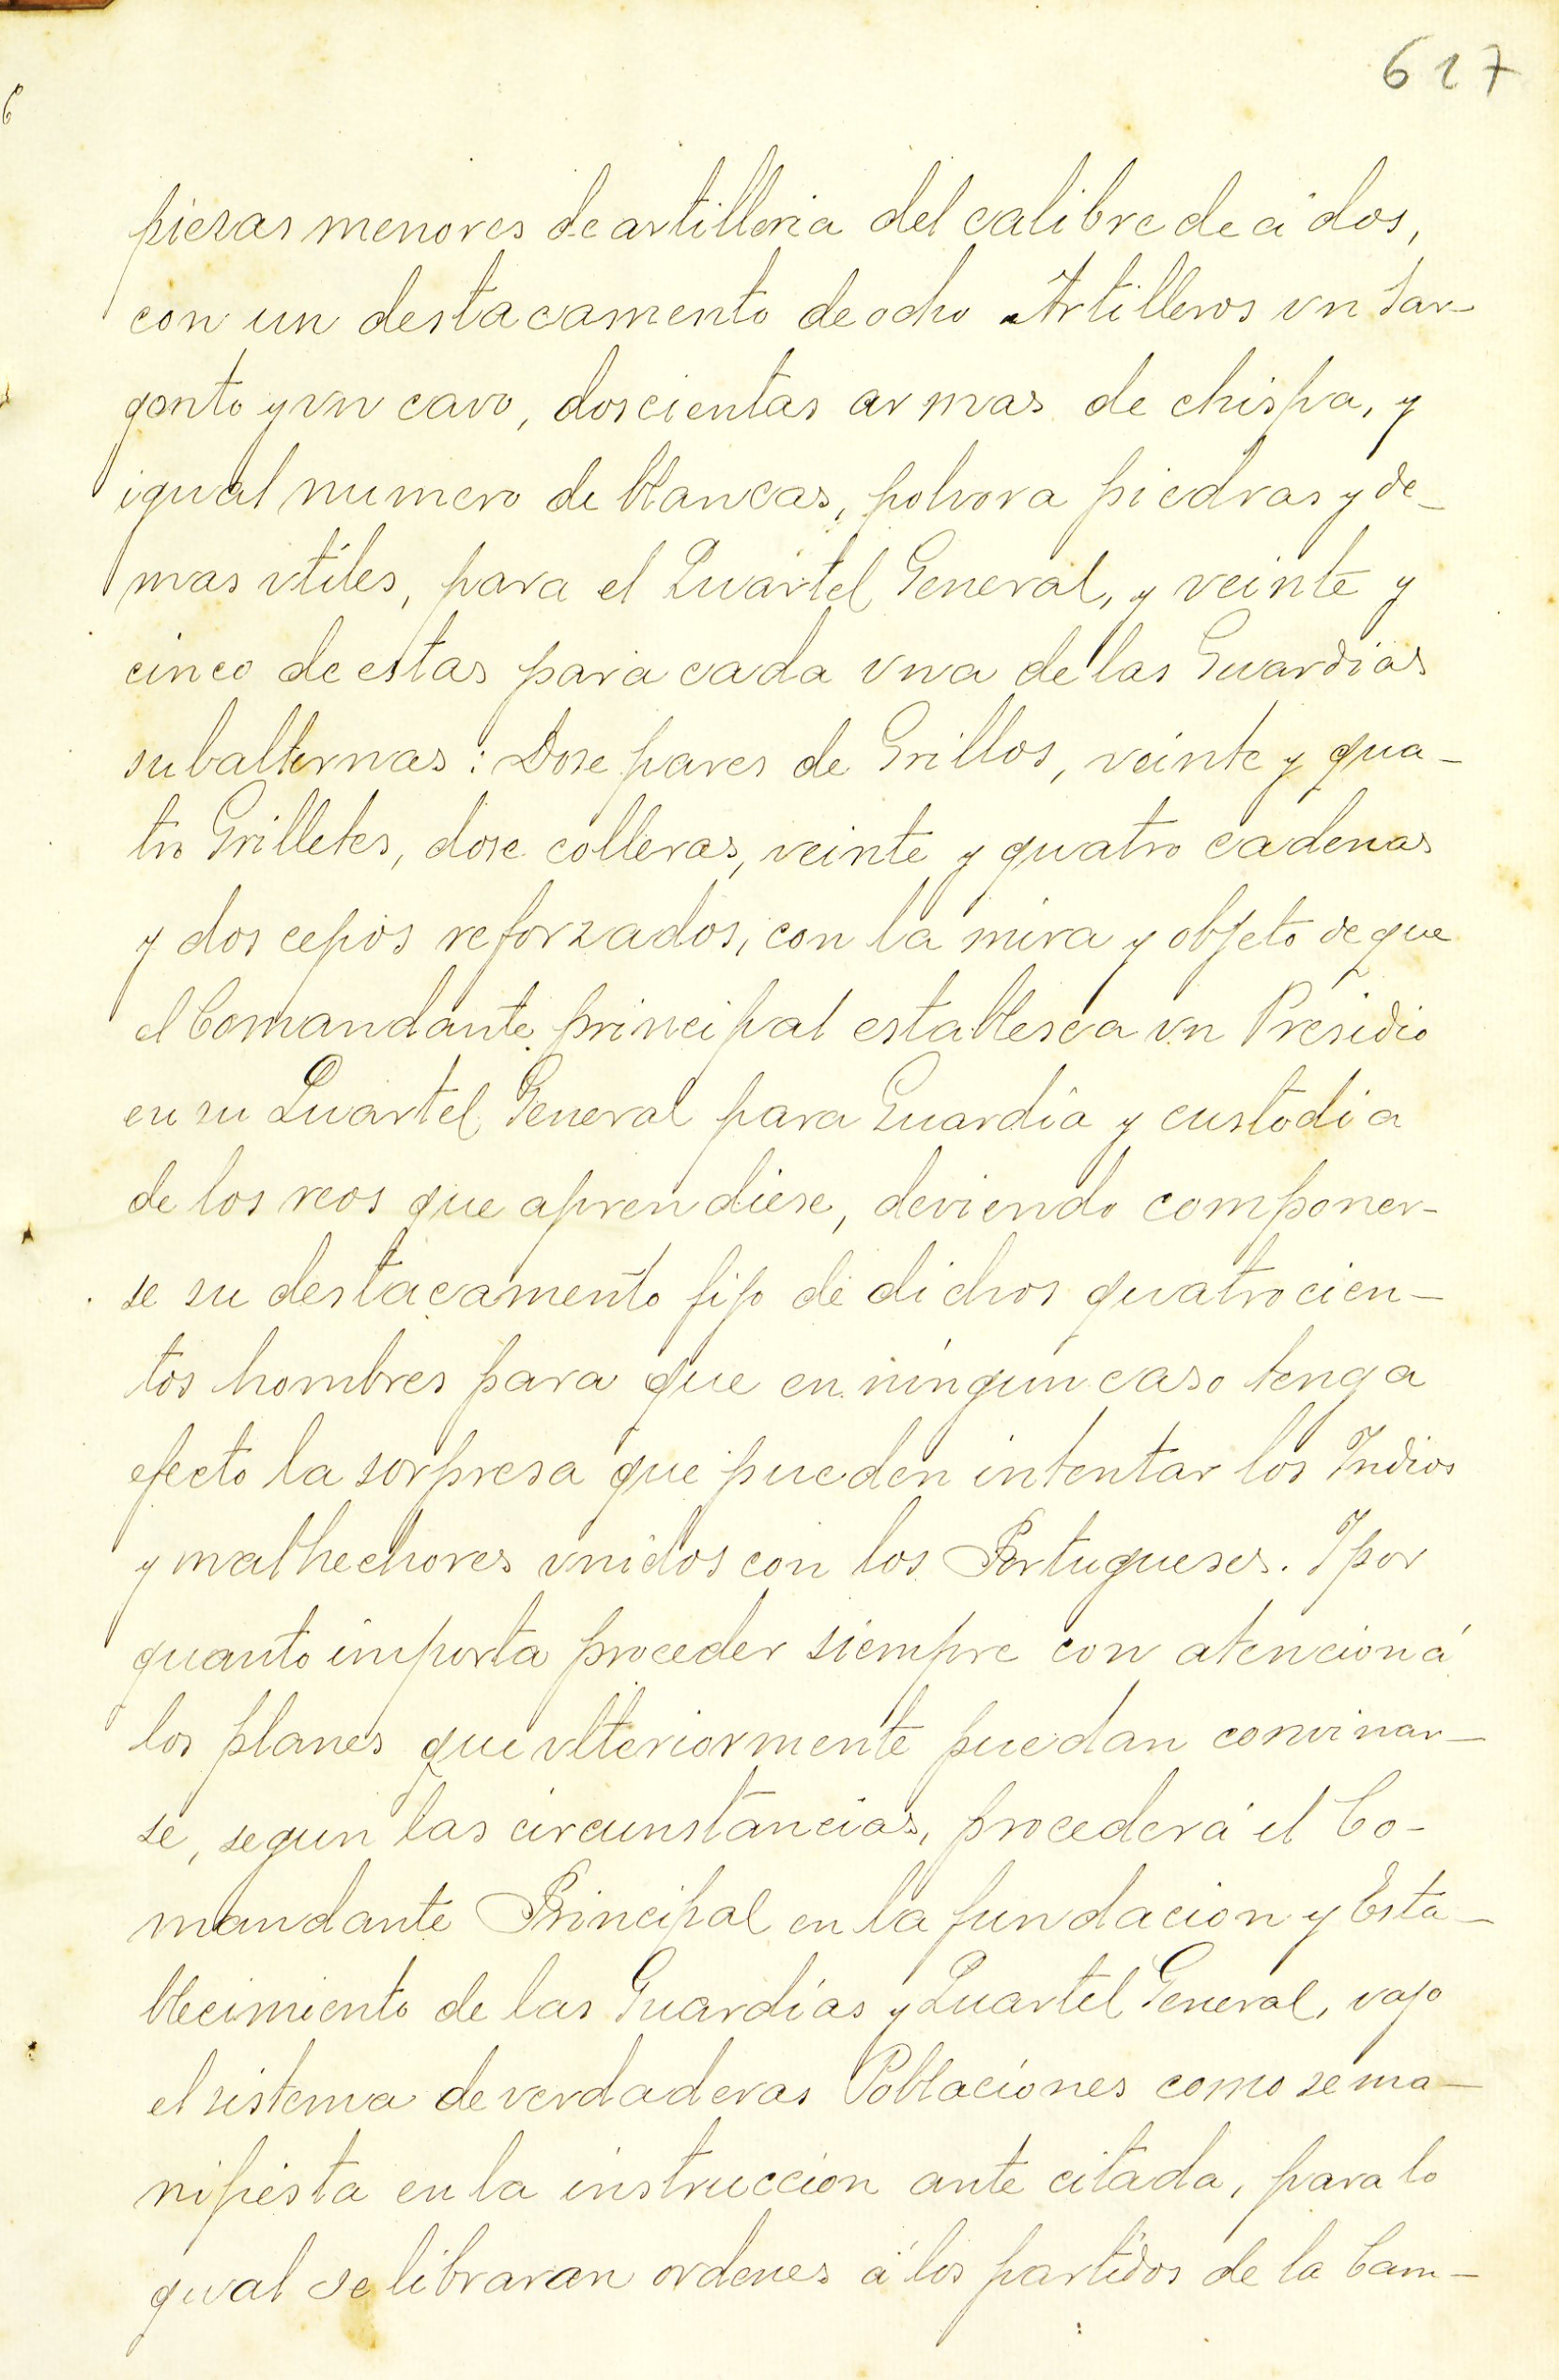 617
piezas menores de artilleria del calibre de á dos,
con un destacamento de ocho Artilleros vn Sar-
gento y vn cavo, doscientas armas de chispa, y
igual numero de blancas, polvora piedras y de-
mas vtiles, para el Quartel General, y veinte y
cinco de estas para cada vna de las Guardias
subalternas: Dose pares de Grillos, veinte y qua-
tro Grilletes, dose colleras, veinte y quatro cadenas
y dos cepos reforzados, con la mira y objeto de que
el Comandante principal establesca vn Presidio
en su Quartel General para Guardia y custodia
de los reos que aprendiese, deviendo componer-
se su destacamento fijo de dichos quatrocien-
tos hombres para que en ningun caso tenga
efecto la sorpresa que pueden intentar los Indios
y malhechores vnidos con los Portugueses. Y por
quanto importa proceder siempre con atencion á
los planes que vlteriormente puedan convinar-
se, segun las circunstancias, procederá el Co-
mandante Principal en la fundacion y Esta-
blecimiento de las Guardias y Quartel General, vajo
el sistema de verdaderas Poblaciones como se ma-
nifiesta en la instruccion ante citada, para lo
qual se libraran ordenes á los partidos de la Cam-